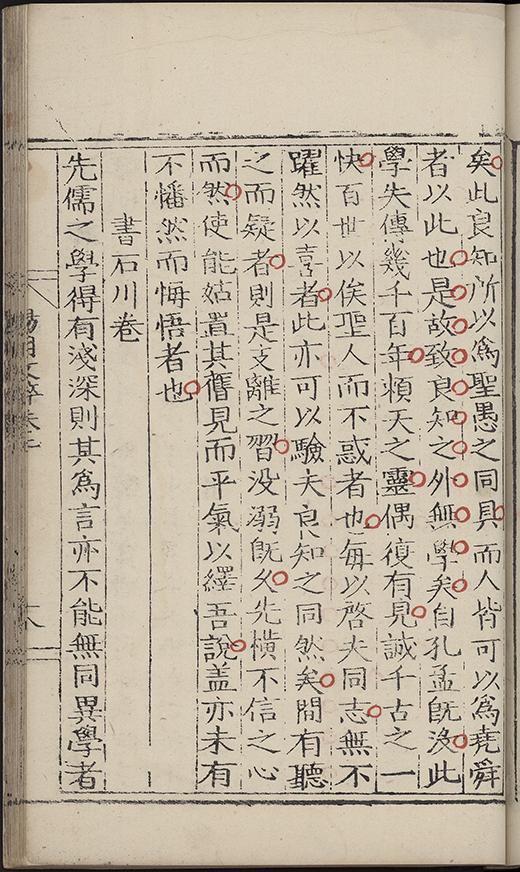 矣此良知所以爲聖愚之同具而人皆可以爲堯舜
者以此也是故致良知之外無學矣自孔孟旣没此
學失傳幾千百年頼天之靈偶復有見誠千古之一
快百世以俟聖人而不惑者也毎以啓夫同志無不
躍然以喜者此亦可以驗夫良知之同然矣間有聽
之而疑者則是支離之習没溺旣久先横不信之心
而然使能姑置其舊見而平氣以繹吾說盖亦未有
不幡然而悔悟者也
書石川卷
先儒之學得有淺深則其爲言亦不能無同異學者
陽明文粹卷